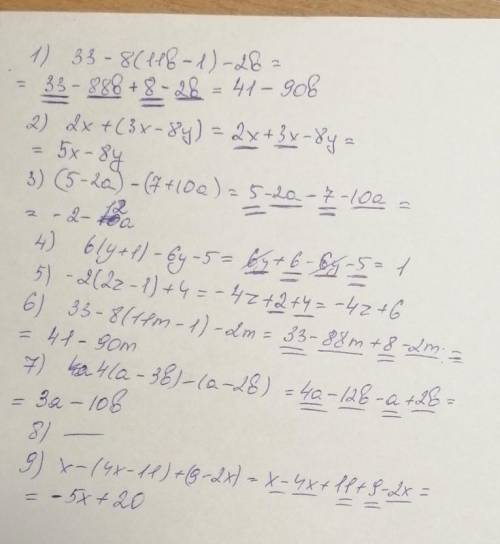 1) 33 - 8(11в - 1) - 2в =
= 33 - 88в + 8 - 2в = 41 - 90в
2) 2x + (3x - 8y) = 2x + 3x - 8y =
= 5x - 8y
3) (5 - 2a) - (7 + 10a) = 5 - 2a - 7 - 10a =
= -2 - 12a
4) 6(y + 1) - 6y - 5 = 6y + 6 - 6y - 5 = 1
5) -2(2z - 1) + 4 = -4z + 2 + 4 = -4z + 6
6) 33 - 8(11m - 1) - 2m = 33 - 88m + 8 - 2m =
= 41 - 90m
7) 4(a - 3в) - (a - 2в) = 4a - 12в - a + 2в =
= 3a - 10в
8) —
9) x - (4x - 11) + (9 - 2x) = x - 4x + 11 + 9 - 2x =
= -5x + 20